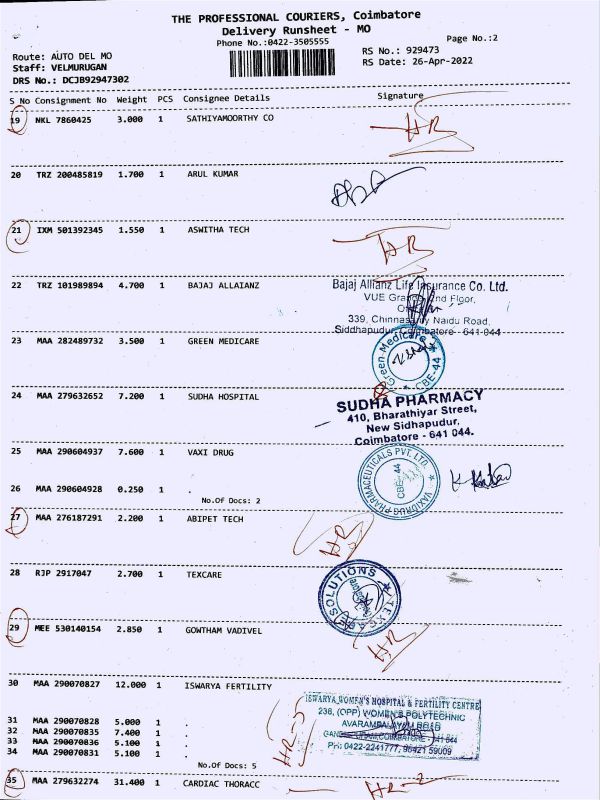 THE PROFESSIONAL COURIERS, Coimbatore
Delivery Runsheet - MO
Phone No.:0422-3505555
Page No.:2
Route: AUTO DEL MO
RS No.: 929473
Staff: VELMURUGAN
RS Date: 26-Apr-2022
DRS No.: DCJB92947302
S No Consignment No Weight PCS Consignee Details Signature
19 NKL 7860425 3.000 1 SATHIYAMOORTHY CO HR
20 TRZ 200485819 1.700 1 ARUL KUMAR
21 IXM 501392345 1.550 1 ASWITHA TECH HR
22 TRZ 101989894 4.700 1 BAJAJ ALLAIANZ
Bajaj Allianz Life Insurance Co. Ltd.
VUE Grande, 2nd Floor,
339, Chinnasamy Naidu Road,
Siddhapudur, Coimbatore - 641 044
23 MAA 282489732 3.500 1 GREEN MEDICARE
Green-Medicare * CBE-44 *
24 MAA 279632652 7.200 1 SUDHA HOSPITAL
SUDHA PHARMACY
410, Bharathiyar Street,
New Sidhapudur,
Coimbatore - 641 044.
25 MAA 290604937 7.600 1 VAXI DRUG
VAXIDRUG PHARMACEUTICALS PVT. LTD. *
CBE-44
26 MAA 290604928 0.250 1 .
No.Of Docs: 2
27 MAA 276187291 2.200 1 ABIPET TECH HR
28 RJP 2917047 2.700 1 TEXCARE
SOLUTIONS
29 MEE 530140154 2.850 1 GOWTHAM VADIVEL HR
30 MAA 290070827 12.000 1 ISWARYA FERTILITY
ISWARYA WOMEN'S HOSPITAL & FERTILITY CENTRE
236, (OPP) WOMEN'S POLYTECHNIC
AVARAMPALAYAM ROAD
COIMBATORE - 641 044
PH: 0422-2241777, 98421 59009
31 MAA 290070828 5.000 1 .
32 MAA 290070835 7.400 1 .
33 MAA 290070836 5.100 1 .
34 MAA 290070831 5.100 1 .
No.Of Docs: 5
35 MAA 279632274 31.400 1 CARDIAC THORACC HR-2